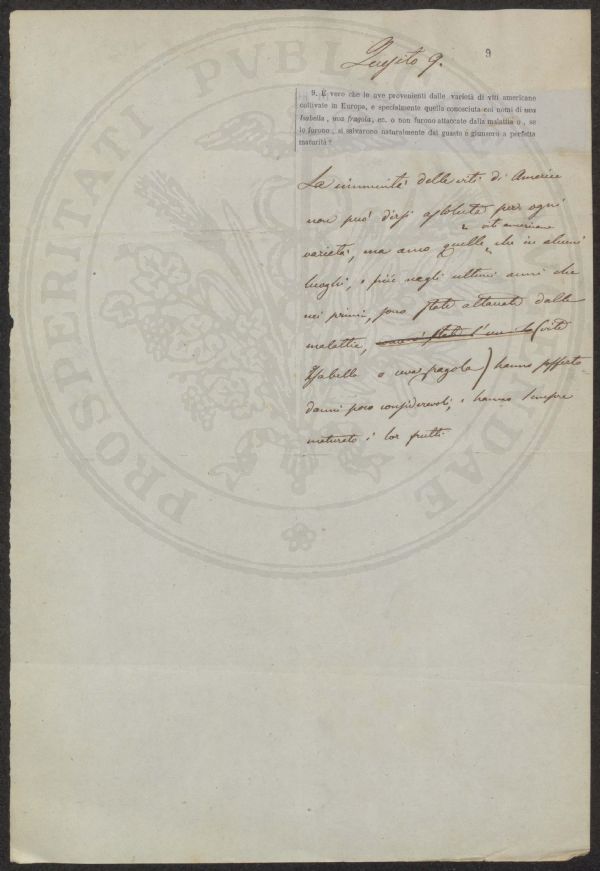 9
Quesito 9.
9. È vero che le uve provenienti dalle varietà di viti americane
coltivate in Europa, e specialmente quella conosciuta coi nomi di uva
Isabella, uva fragola, ec. o non furono attaccate dalla malattia o, se
lo furono, si salvarono naturalmente dal guasto e giunsero a perfetta
maturità?
La immunità delle viti di America
non può dirsi assoluta per ogni
viti americane
varietà, ma anco quelle che in alcuni
luoghi, e più negli ultimi anni che
nei primi, sono state attaccate dalla
malattia, (vite
Isabella o uva fragola) hanno sofferto
danni poco considerevoli, e hanno sempre
maturato i lor frutti.
PROSPERITATI PVBLICAE